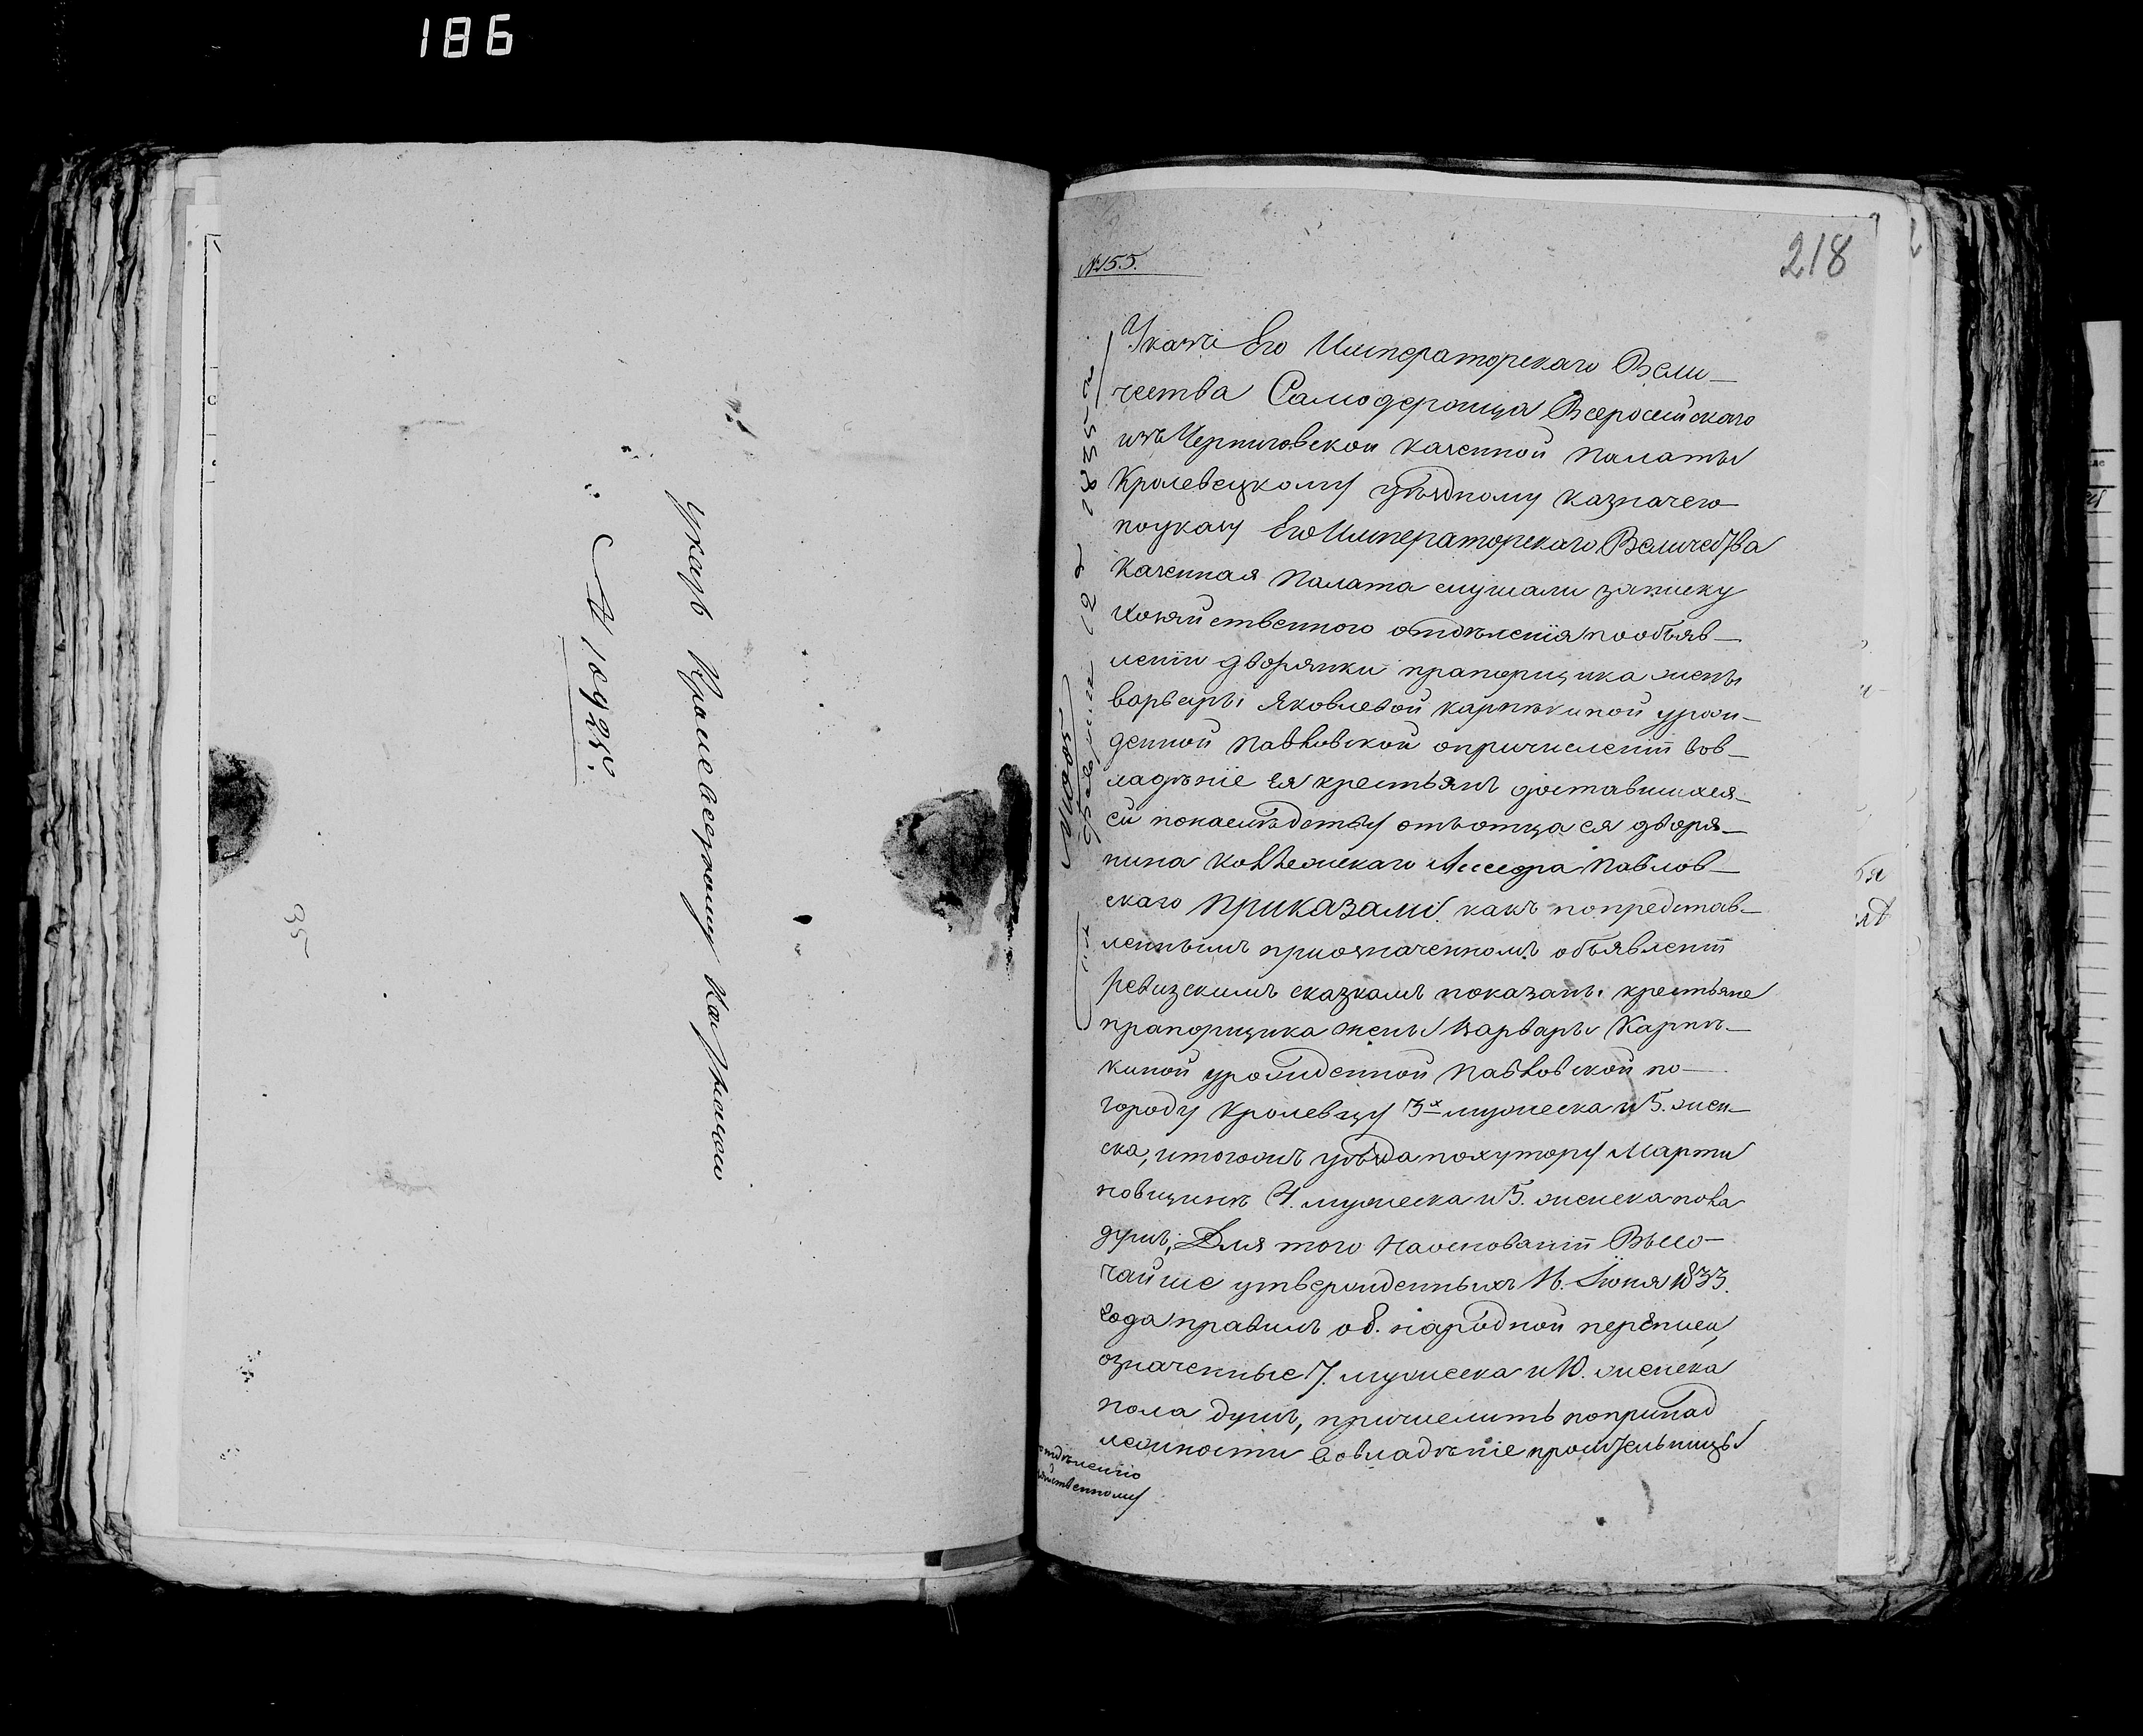 186
указъ Кролевецкому Казначею
№ 10925.
35
№155.
218
Указъ Его Императорскаго Вели-
чества Самодержца Всеросийскаго
изъ Черниговской казенной палаты
Кролевецкому уѣздному казначею
поуказу Его Императорскаго Величества
Казенная Палата слушали записку
Хозяйственного отдѣленія пообъяв-
леніи дворянки прапорщика жены
варвары Яковлевой карпѣкиной урож-
денной павловской опричисленіи вов-
ладѣніе ея крестьянъ доставшихся
ей понаслѣдству отъотца ея дворя-
нина коллежскаго Ассесора Павлов-
скаго приказали: какъ попредстав-
леннымъ приозначенномъ объявленіи
ревизскимъ сказкамъ показаны крестьяне
прапорщика жены Варвары Карпѣ-
киной урожденной павловской по
городу Кролевцу 3х мужеска и 5. жен-
ска, итогожъ уѣзда похутору Марти
новщинѣ 4. мужеска и 5. женска пола
душъ; Для того Наосновании Высо-
чайше утвержденныхъ 16. Іюня 1833.
года правилъ об. народной переписи,
означенные 7. мужеска и 10. женска
пола душъ, причислить поприпад
лежности вовладѣніе просительницы
отдѣленію